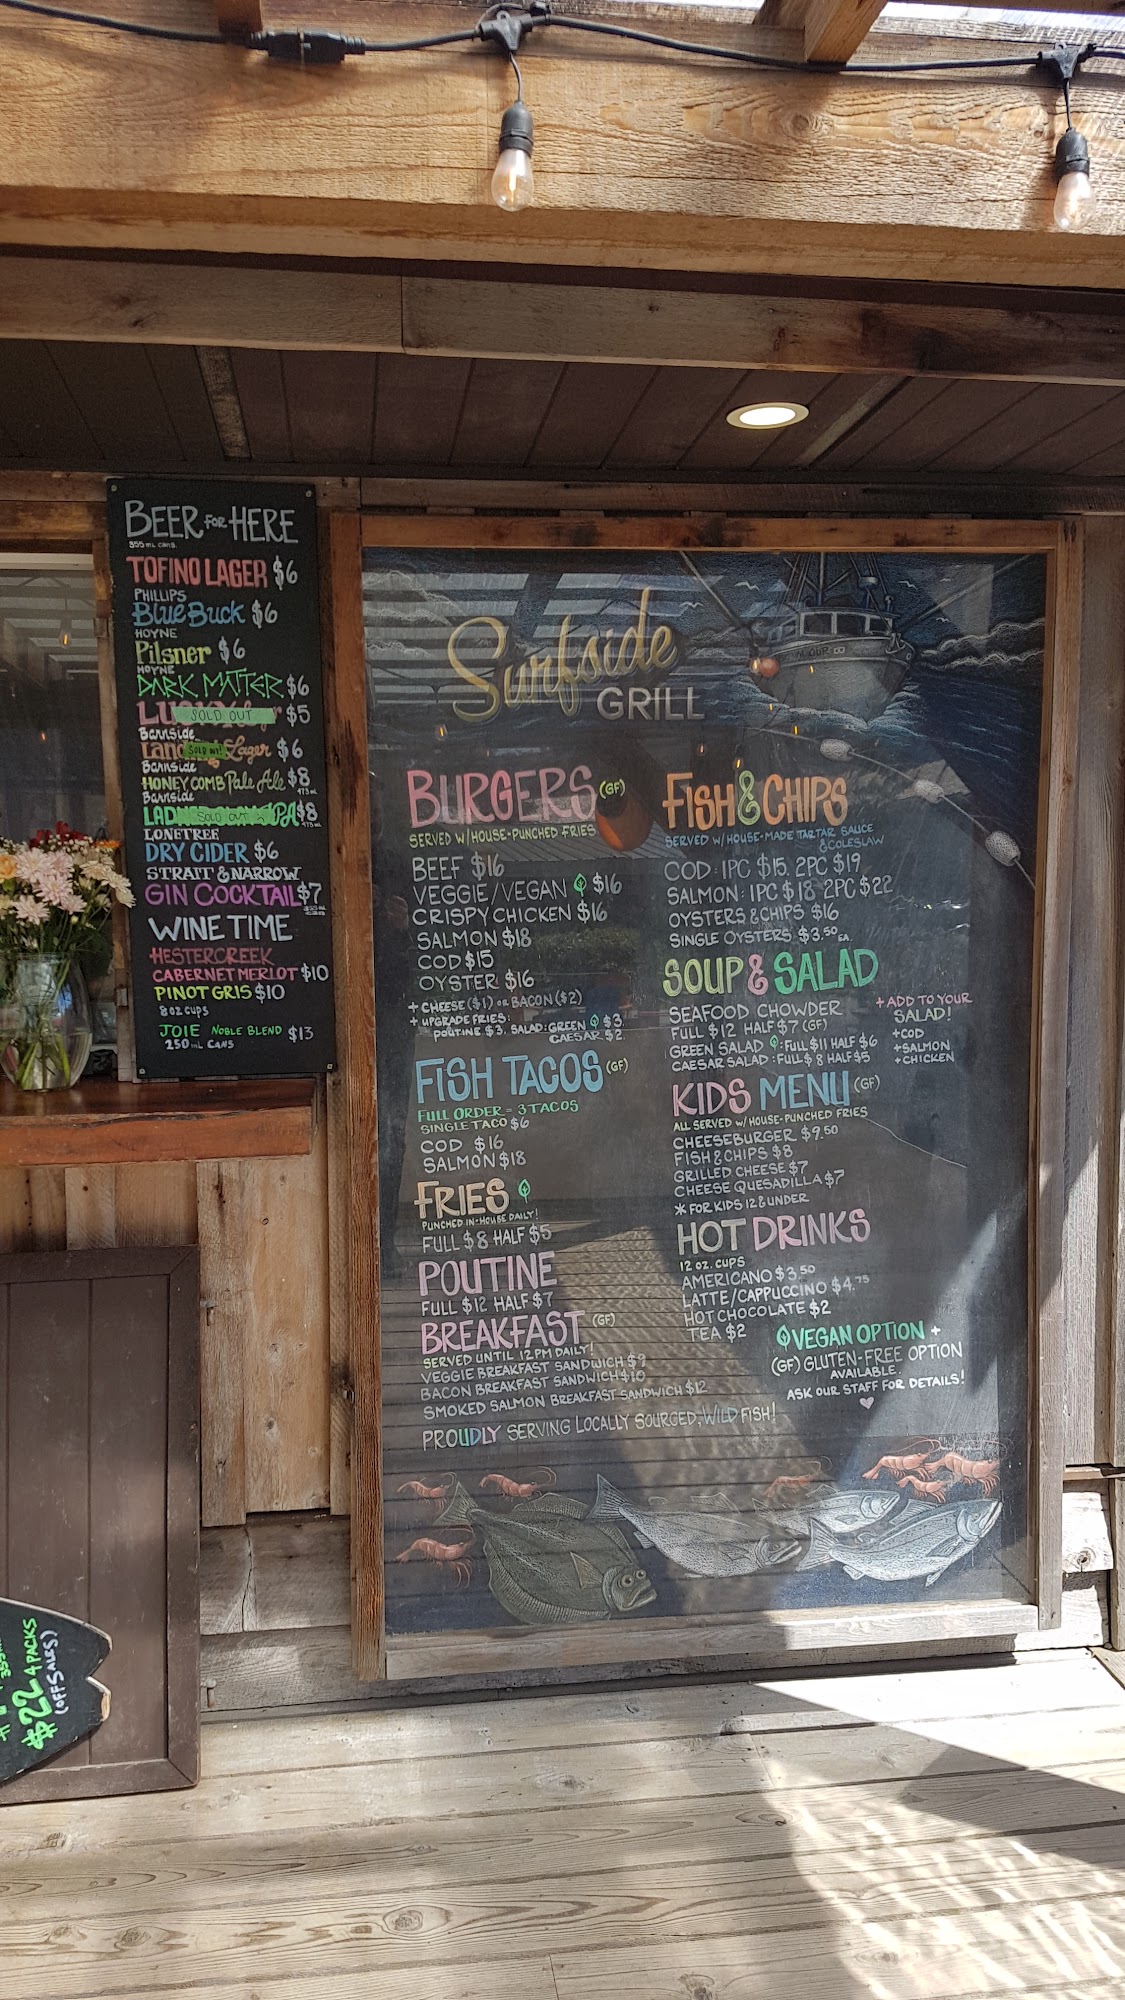 BEER FOR HERE
355 mL CANS.
TOFINO LAGER $6
PHILLIPS
BLUE BUCK $6
HOYNE
PILSNER $6
HOYNE
DARK MATTER $6
SOLD OUT $5
BARNSIDE
SOLD OUT! LAGER $6
BARNSIDE
HONEYCOMB PALE ALE $8
473 mL
BARNSIDE
SOLD OUT $8
473 mL
LONETREE
DRY CIDER $6
STRAIT & NARROW
GIN COCKTAIL $7
WINE TIME
HESTER CREEK
CABERNET MERLOT $10
PINOT GRIS $10
8 OZ CUPS
JOIE NOBLE BLEND $13
250 mL CANS
$22 4 PACKS
(OFF SALES)
Surfside
GRILL
BURGERS (GF)
SERVED W/HOUSE-PUNCHED FRIES
BEEF $16
VEGGIE/VEGAN $16
CRISPY CHICKEN $16
SALMON $18
COD $15
OYSTER $16
+ CHEESE ($1) OR BACON ($2)
+ UPGRADE FRIES:
POUTINE $3. SALAD: GREEN $3
CAESAR $2.
FISH TACOS (GF)
FULL ORDER = 3 TACOS
SINGLE TACO $6
COD $16
SALMON $18
FRIES
PUNCHED IN-HOUSE DAILY!
FULL $8 HALF $5
POUTINE
FULL $12 HALF $7
BREAKFAST (GF)
SERVED UNTIL 12PM DAILY!
VEGGIE BREAKFAST SANDWICH $9
BACON BREAKFAST SANDWICH $10
SMOKED SALMON BREAKFAST SANDWICH $12
PROUDLY SERVING LOCALLY SOURCED, WILD FISH!
FISH & CHIPS
SERVED W/HOUSE-MADE TARTAR SAUCE
& COLESLAW
COD: 1PC $15. 2PC $19
SALMON: 1PC $18 2PC $22
OYSTERS & CHIPS $16
SINGLE OYSTERS $3.50 EA.
SOUP & SALAD
SEAFOOD CHOWDER
FULL $12 HALF $7 (GF)
GREEN SALAD : FULL $11 HALF $6
CAESAR SALAD : FULL $8 HALF $5
+ ADD TO YOUR
SALAD!
+COD
+SALMON
+CHICKEN
KIDS MENU (GF)
ALL SERVED W/HOUSE-PUNCHED FRIES
CHEESEBURGER $9.50
FISH & CHIPS $8
GRILLED CHEESE $7
CHEESE QUESADILLA $7
* FOR KIDS 12 & UNDER
HOT DRINKS
12 OZ. CUPS
AMERICANO $3.50
LATTE/CAPPUCCINO $4.75
HOT CHOCOLATE $2
TEA $2
VEGAN OPTION +
(GF) GLUTEN-FREE OPTION
AVAILABLE.
ASK OUR STAFF FOR DETAILS!